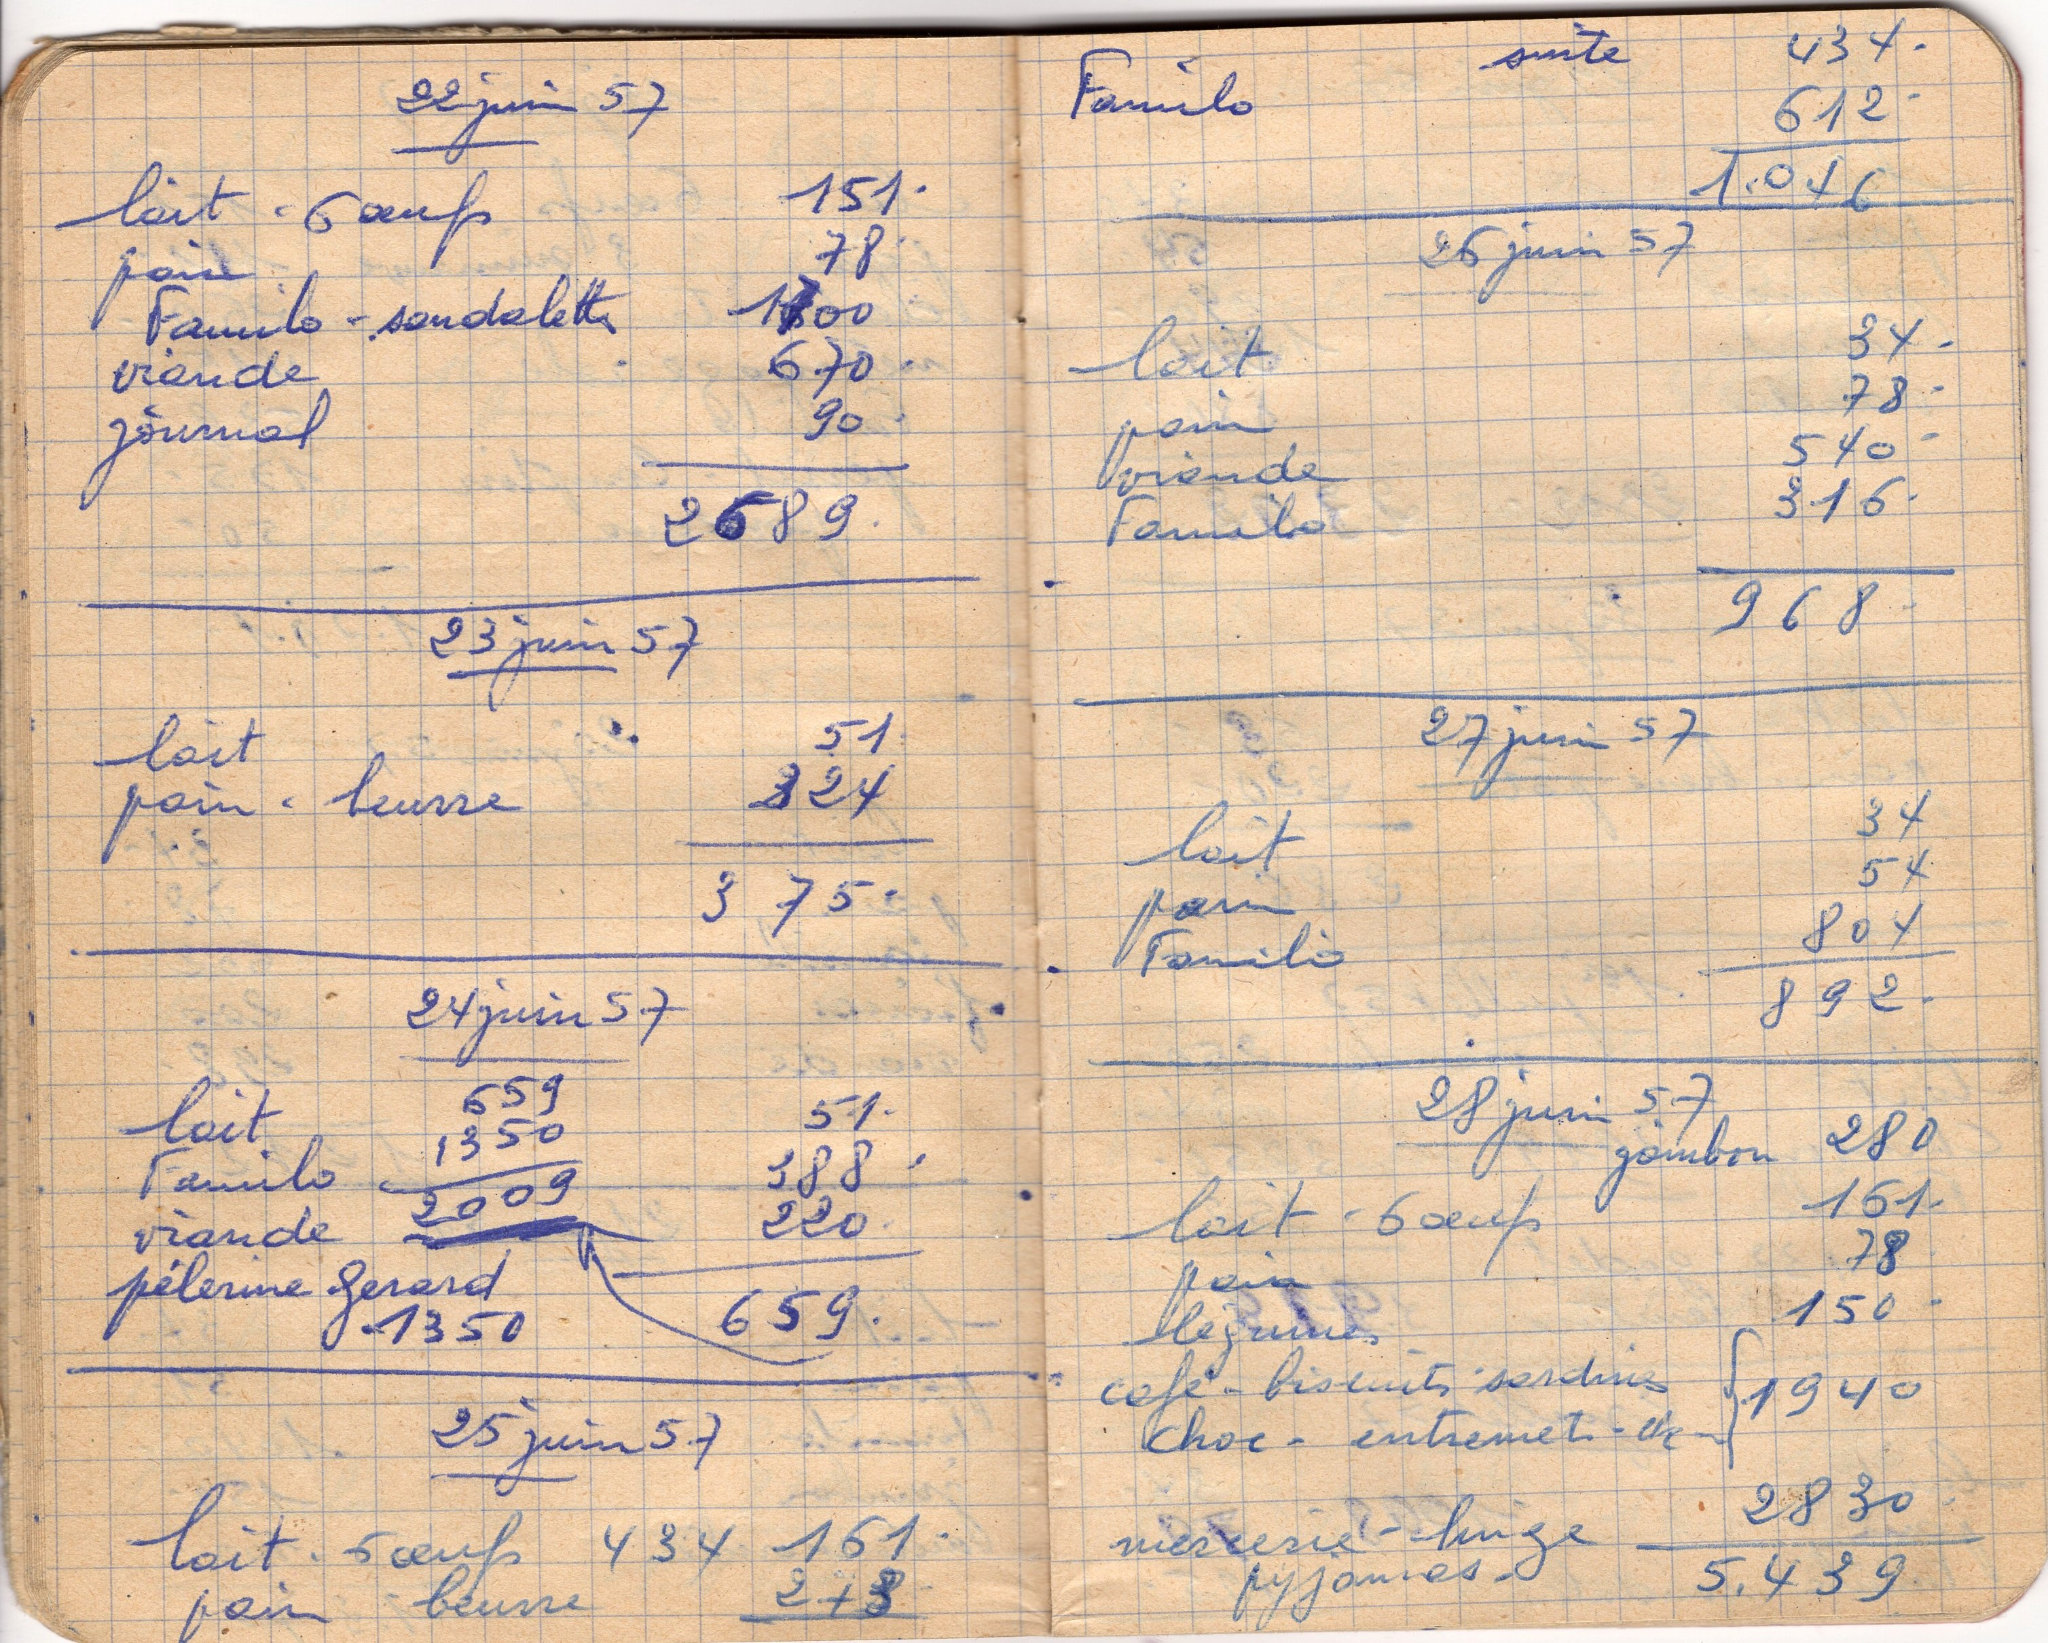 22 juin 57
lait - 6 œufs 151.
pain 78.
Familo - sandalettes 1700
viande 670.
journal 90.
2689.
23 juin 57
lait 51.
pain - beurre 324
375.
24 juin 57
lait 659 51.
1350
Familo 388.
viande 2009 220.
pélerine Gerard
1350 659.
25 juin 57
lait - 6 œufs 434 161.
pain beurre 273
suite 434.
Familo 612.
1.046
26 juin 57
lait 34.
pain 78.
viande 540.
Familo 316.
968.
27 juin 57
lait 34
pain 54
Familo 804
892.
28 juin 57
jambon 280
lait - 6 œufs 161.
pain 78
légumes 150.
café - biscuits - sardines
choc - entremets - etc 1940
2830
mercerie - linge
pyjamas. 5.439